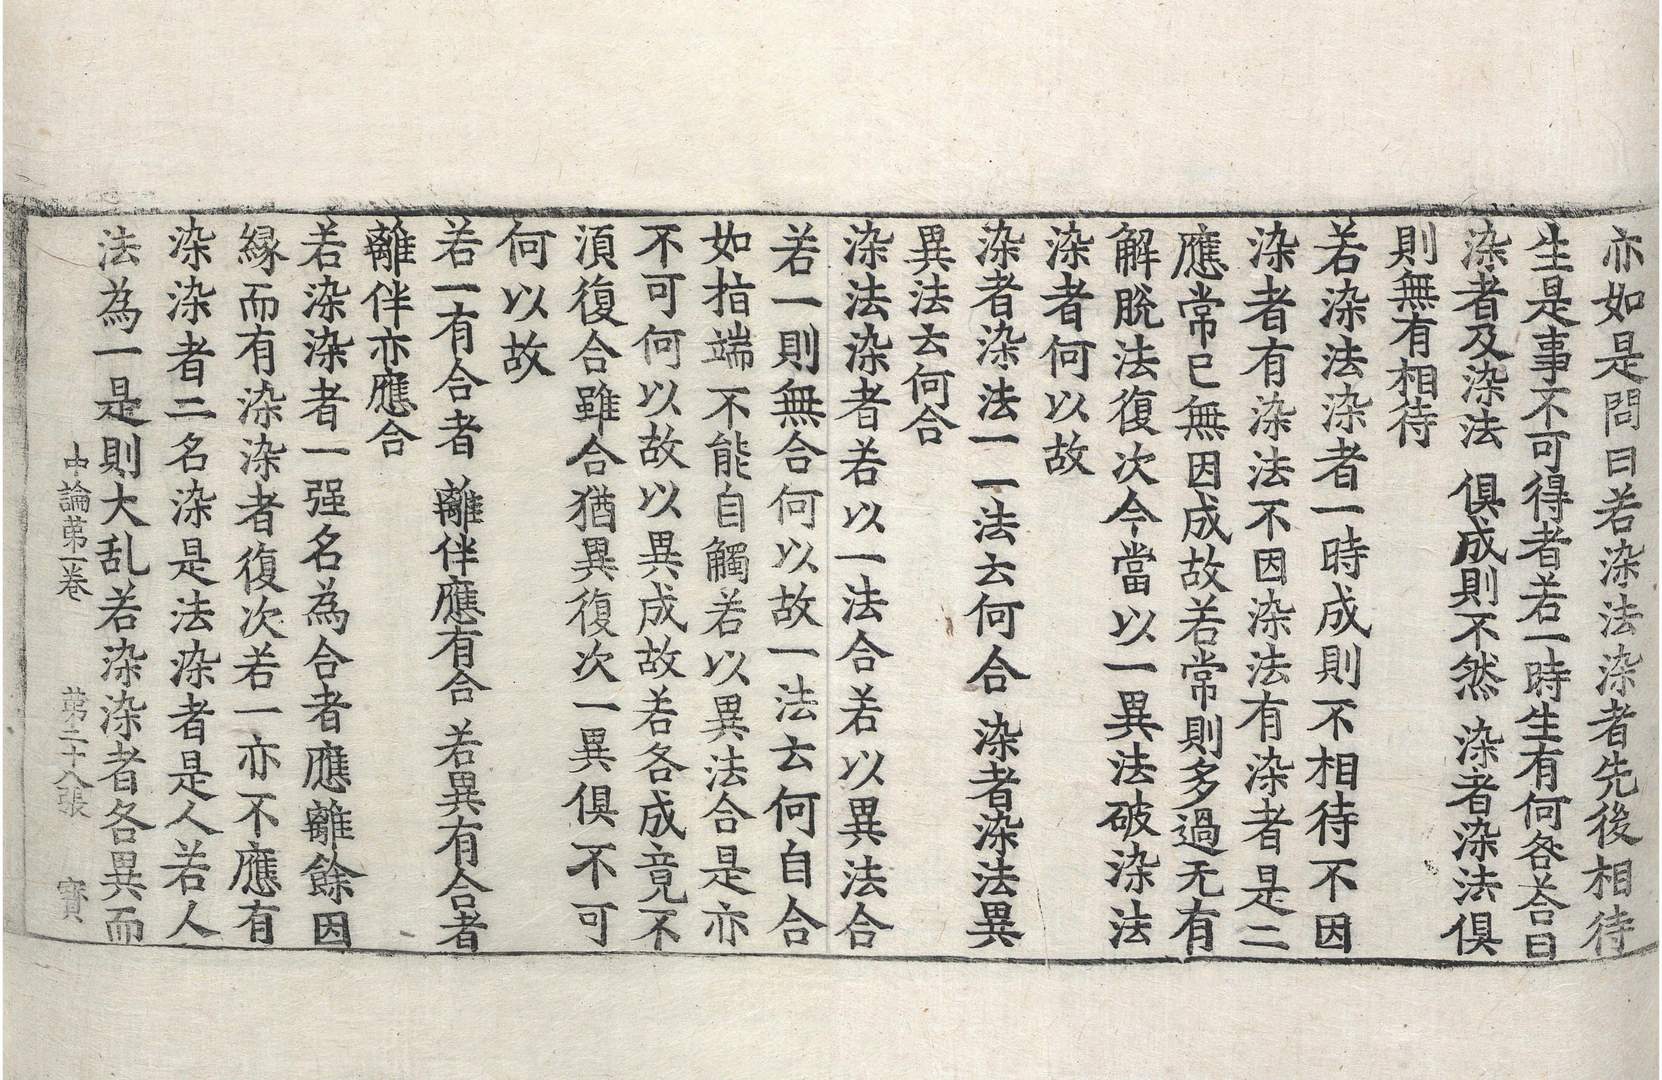 亦如是問曰若染法染者先後相待
生是事不可得者若一時生有何咎荅曰
染者及染法 俱成則不然 染者染法俱
則無有相待
若染法染者一時成則不相待不因
染者有染法不因染法有染者是二
應常已無因成故若常則多過无有
解脫法復次今當以一異法破染法
染者何以故
染者染法一 一法云何合 染者染法異
異法云何合
染法染者若以一法合若以異法合
若一則無合何以故一法云何自合
如指端不能自觸若以異法合是亦
不可何以故以異成故若各成竟不
湏復合雖合猶異復次一異俱不可
何以故
若一有合者 離伴應有合 若異有合者
離伴亦應合
若染染者一强名為合者應離餘因
緣而有染染者復次若一亦不應有
染染者二名染是法染者是人若人
法為一是則大乱若染染者各異而
中論第一卷 第二十八張 寳